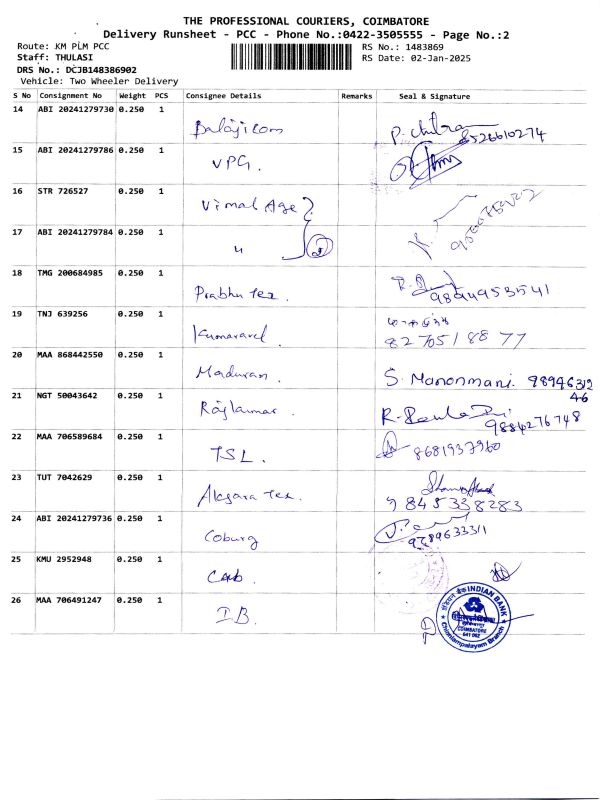 THE PROFESSIONAL COURIERS, COIMBATORE
Delivery Runsheet - PCC - Phone No.:0422-3505555 - Page No.:2
Route: KM PLM PCC RS No.: 1483869
Staff: THULASI RS Date: 02-Jan-2025
DRS No.: DCJB148386902
Vehicle: Two Wheeler Delivery
S No Consignment No Weight PCS Consignee Details Remarks Seal & Signature
14 ABI 20241279730 0.250 1 P. Chitra
8526610274
15 ABI 20241279786 0.250 1 VPG.
16 STR 726527 0.250 1 Vimal Age
17 ABI 20241279784 0.250 1 "
18 TMG 200684985 0.250 1 Prabhu Tex.
9894953541
19 TNJ 639256 0.250 1 Kumaravel
8270518877
20 MAA 868442550 0.250 1 Maduran S. Manonmani. 98946312
46
21 NGT 50043642 0.250 1 Rajkumar.
9884276748
22 MAA 706589684 0.250 1 TSL. 8681937960
23 TUT 7042629 0.250 1 Aksara Tex.
9845338283
24 ABI 20241279736 0.250 1 Coburg
25 KMU 2952948 0.250 1
26 MAA 706491247 0.250 1 I.B.
INDIAN BANK
COIMBATORE